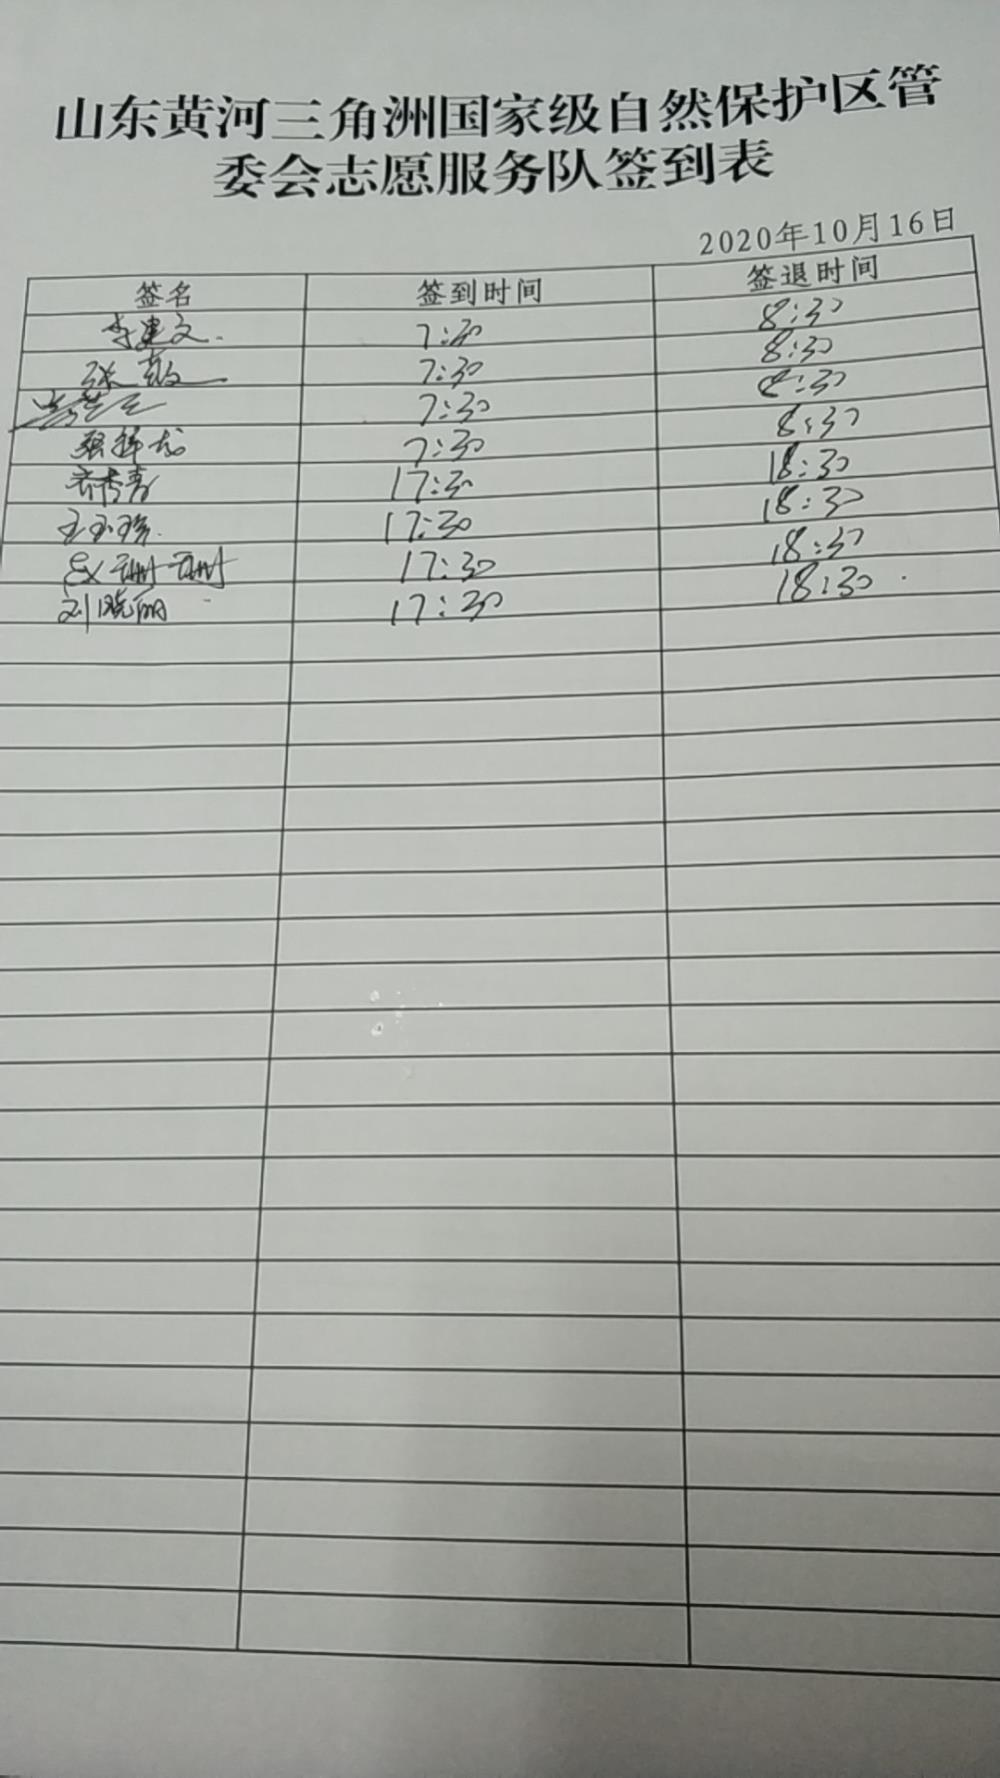 山东黄河三角洲国家级自然保护区管
委会志愿服务队签到表
2020年10月16日
签名 签到时间 签退时间
李建文 7:30 8:30
张毅 7:30 8:30
7:30 8:30
7:30 8:30
17:30 18:30
王玉珍 17:30 18:30
17:30 18:30
刘晓丽 17:30 18:30